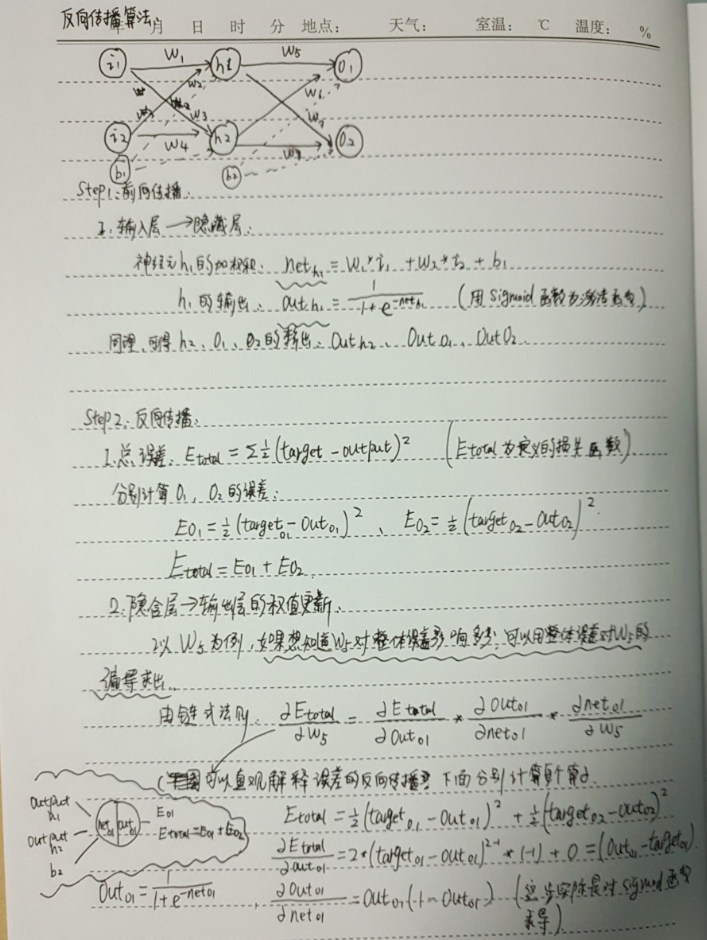 反向传播算法
年 月 日 时 分 地点： 天气： 室温： ℃ 温度： %
i₁ w₁ h1 w₅ O₁
w₂ w₆
w₃ w₇
i₂ w₄ h2 w₈ O₂
b₁ b₂
Step1:前向传播:
1.输入层→隐藏层:
神经元h₁的加权和: net_h₁ = w₁*i₁ + w₂*i₂ + b₁
h₁的输出: out_h₁ = 1/(1+e^(-net_h₁)) (用sigmoid函数为激活函数)
同理,可得h₂、O₁、O₂的输出、Out_h₂、Out_O₁、Out_O₂.
Step2:反向传播:
1.总误差: E_total = Σ½(target-output)² (E_total为定义的损失函数)
分别计算O₁,O₂的误差:
E_O₁ = ½(target_O₁-Out_O₁)²、E_O₂ = ½(target_O₂-Out_O₂)²
E_total = E_O₁ + E_O₂.
2.隐含层→输出层的权值更新.
以W₅为例,如果想知道W₅对整体误差影响多少,可以用整体误差对W₅的
偏导求出.
由链式法则: ∂E_total/∂W₅ = ∂E_total/∂Out_O1 * ∂Out_O1/∂net_O1 * ∂net_O1/∂W₅
(图可以直观解释误差的反向传播 下面分别计算
output h₁ net_O1 out_O1 E_O1
output h₂ E_total=E_O1+E_O2
b₂
E_total = ½(target_O₁-Out_O1)² + ½(target_O₂-out_O2)²
∂E_total/∂out_O1 = 2*(target_O1-out_O1)^(2-1) * (-1) + 0 = (Out_O1-target_O1)
Out_O1 = 1/(1+e^(-net_O1)), ∂Out_O1/∂net_O1 = Out_O1(1-Out_O1) (这步实际是对sigmoid函数
求导)